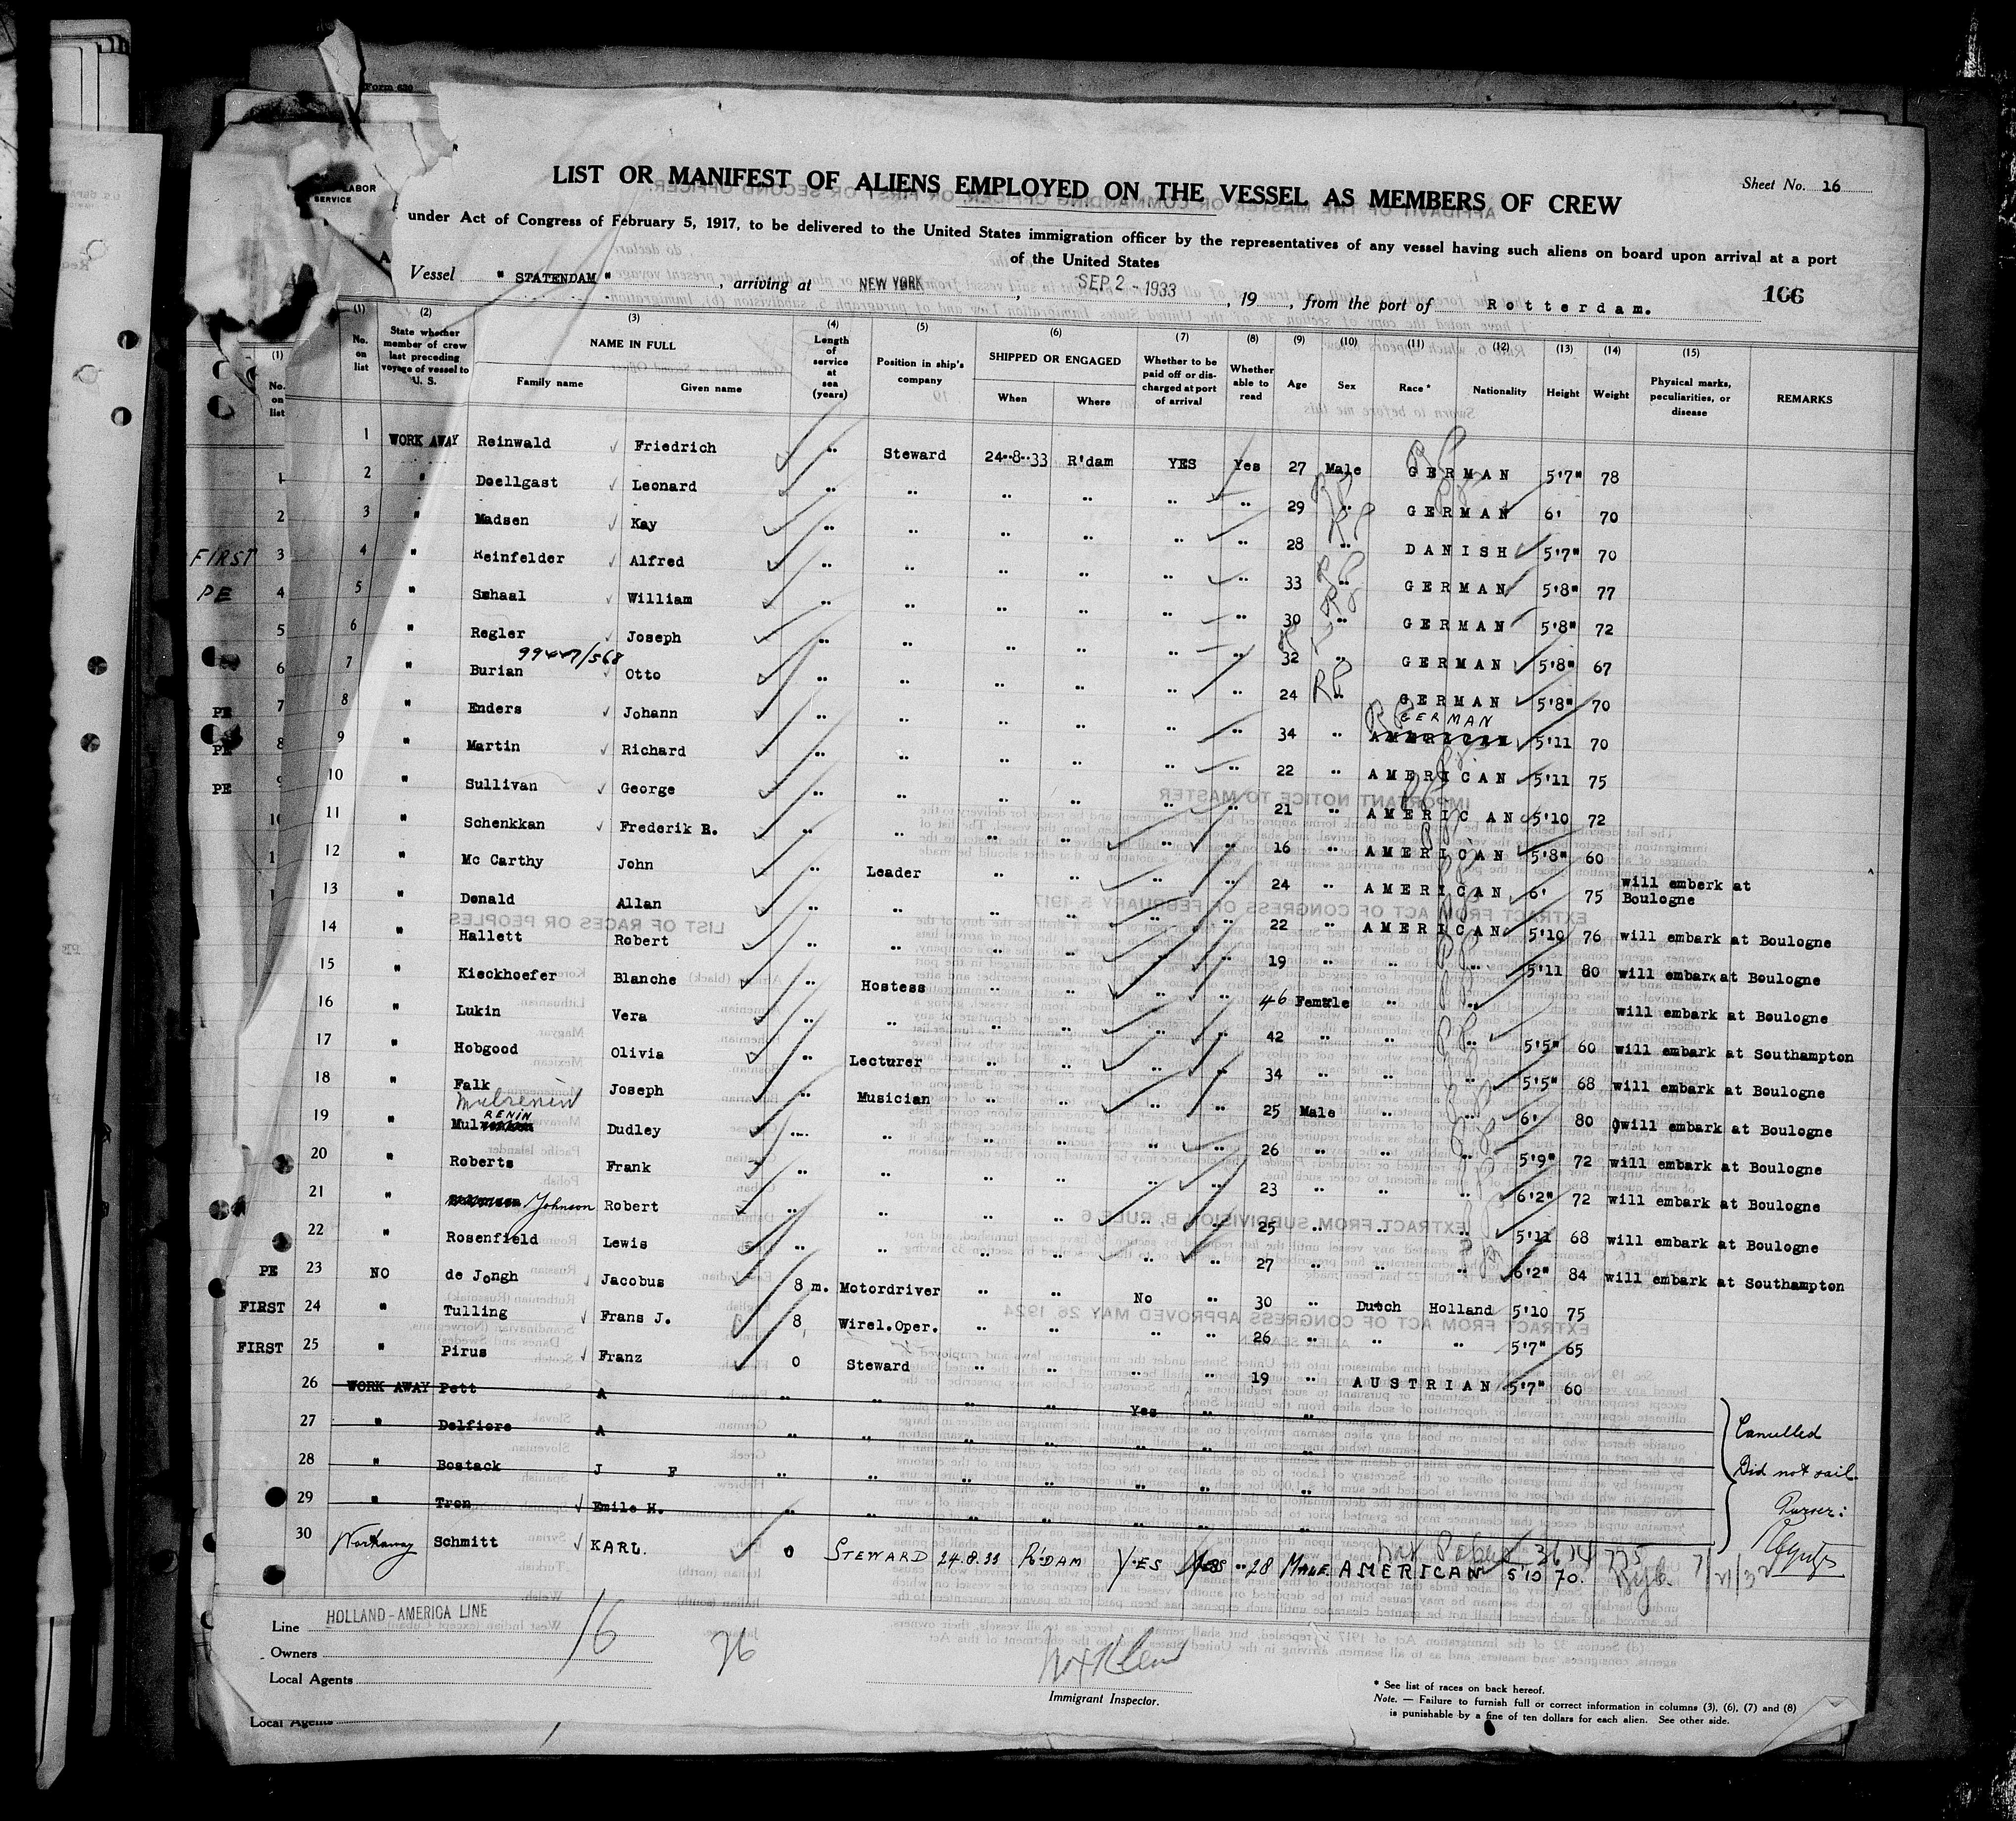 Form 630
LABOR
SERVICE
LIST OR MANIFEST OF ALIENS EMPLOYED ON THE VESSEL AS MEMBERS OF CREW
Sheet No. 16
under Act of Congress of February 5, 1917, to be delivered to the United States immigration officer by the representatives of any vessel having such aliens on board upon arrival at a port
of the United States
Vessel " STATENDAM " , arriving at NEW YORK , SEP 2 - 1933 , 19 , from the port of Rotterdam.
166
(1) (2) (3) (4) (5) (6) (7) (8) (9) (10) (11) (12) (13) (14) (15)
No. on list State whether member of crew last preceding voyage of vessel to U. S. NAME IN FULL Family name Given name Length of service at sea (years) Position in ship's company SHIPPED OR ENGAGED When Where Whether to be paid off or discharged at port of arrival Whether able to read Age Sex Race * Nationality Height Weight Physical marks, peculiarities, or disease REMARKS
1 WORK AWAY Reinwald Friedrich " Steward 24-8-33 R'dam YES Yes 27 Male GERMAN 5'7" 78
2 " Doellgast Leonard " " " " " " 29 " GERMAN 6' 70
3 " Madsen Kay " " " " " " 28 " DANISH 5'7" 70
4 " Reinfelder Alfred " " " " " " 33 " GERMAN 5'8" 77
5 " Schaal William " " " " " " 30 " GERMAN 5'8" 72
6 " Regler Joseph " " " " " " 32 GERMAN 5'8" 67
7 " Burian Otto " " " " " " 24 " GERMAN 5'8" 70
GERMAN
8 " Enders Johann " " " " " " 34 " AMERICAN 5'11 70
9 " Martin Richard " " " " " " 22 " AMERICAN 5'11 75
10 " Sullivan George " " " " " " 21 " AMERICAN 5'10 72
11 " Schenkkan Frederik R. " " " " " " 16 " AMERICAN 5'8" 60
12 " Mc Carthy John " Leader " " " " 24 " AMERICAN 6' 75 will emberk at Boulogne
13 " Donald Allan " " " " " " 22 " AMERICAN 5'10 76 will embark at Boulogne
14 " Hallett Robert " " " " " " 19 " " " 5'11 80 will embark at Boulogne
15 " Kieckhoefer Blanche " Hostess " " " " 46 Female " " will embark at Boulogne
16 " Lukin Vera " " " " " " 42 " " " 5'5" 60 will embark at Southampton
17 " Hobgood Olivia " Lecturer " " " " 34 " " " 5'5" 68 will embark at Boulogne
18 " Falk Joseph " Musician " " " " 25 Male " " 6' 80 will embark at Boulogne
Mulrenin
RENIN
19 " Mul Dudley " " " " " " 26 " " " 5'9" 72 will embark at Boulogne
20 " Roberts Frank " " " " " " 23 " " " 6'2" 72 will embark at Boulogne
21 " Johnson Robert " " " " " " 25 " " " 5'11 68 will embark at Boulogne
22 " Rosenfield Lewis " " " " " " 27 " " " 6'2" 84 will embark at Southampton
PE 23 NO de Jongh Jacobus 8 m. Motordriver " " No " 30 " Dutch Holland 5'10 75
FIRST 24 " Tulling Frans J. 8 Wirel.Oper. " " " " 26 " " " 5'7" 65
FIRST 25 " Pirus Franz 0 Steward " " " " 19 " AUSTRIAN 5'7" 60
26 WORK AWAY Pett A " " " " Yes " "
27 " Delfiore A " " " " " " "
Cancelled
28 " Bostack J F " " " " " " "
Did not sail.
29 " Tron Emile H. " " " " " " "
Purser:
30 Workaway Schmitt KARL. 0 STEWARD 24.8.33 R'DAM YES YES 28 MALE AMERICAN 5'10 70.
Line HOLLAND-AMERICA LINE
Owners
Local Agents
16
76
Immigrant Inspector.
* See list of races on back hereof.
Note. — Failure to furnish full or correct information in columns (3), (6), (7) and (8)
is punishable by a fine of ten dollars for each alien. See other side.
Local Agents
(1)
No. on list
1
2
FIRST 3
PE 4
5
6
PE 7
PE 8
PE 9